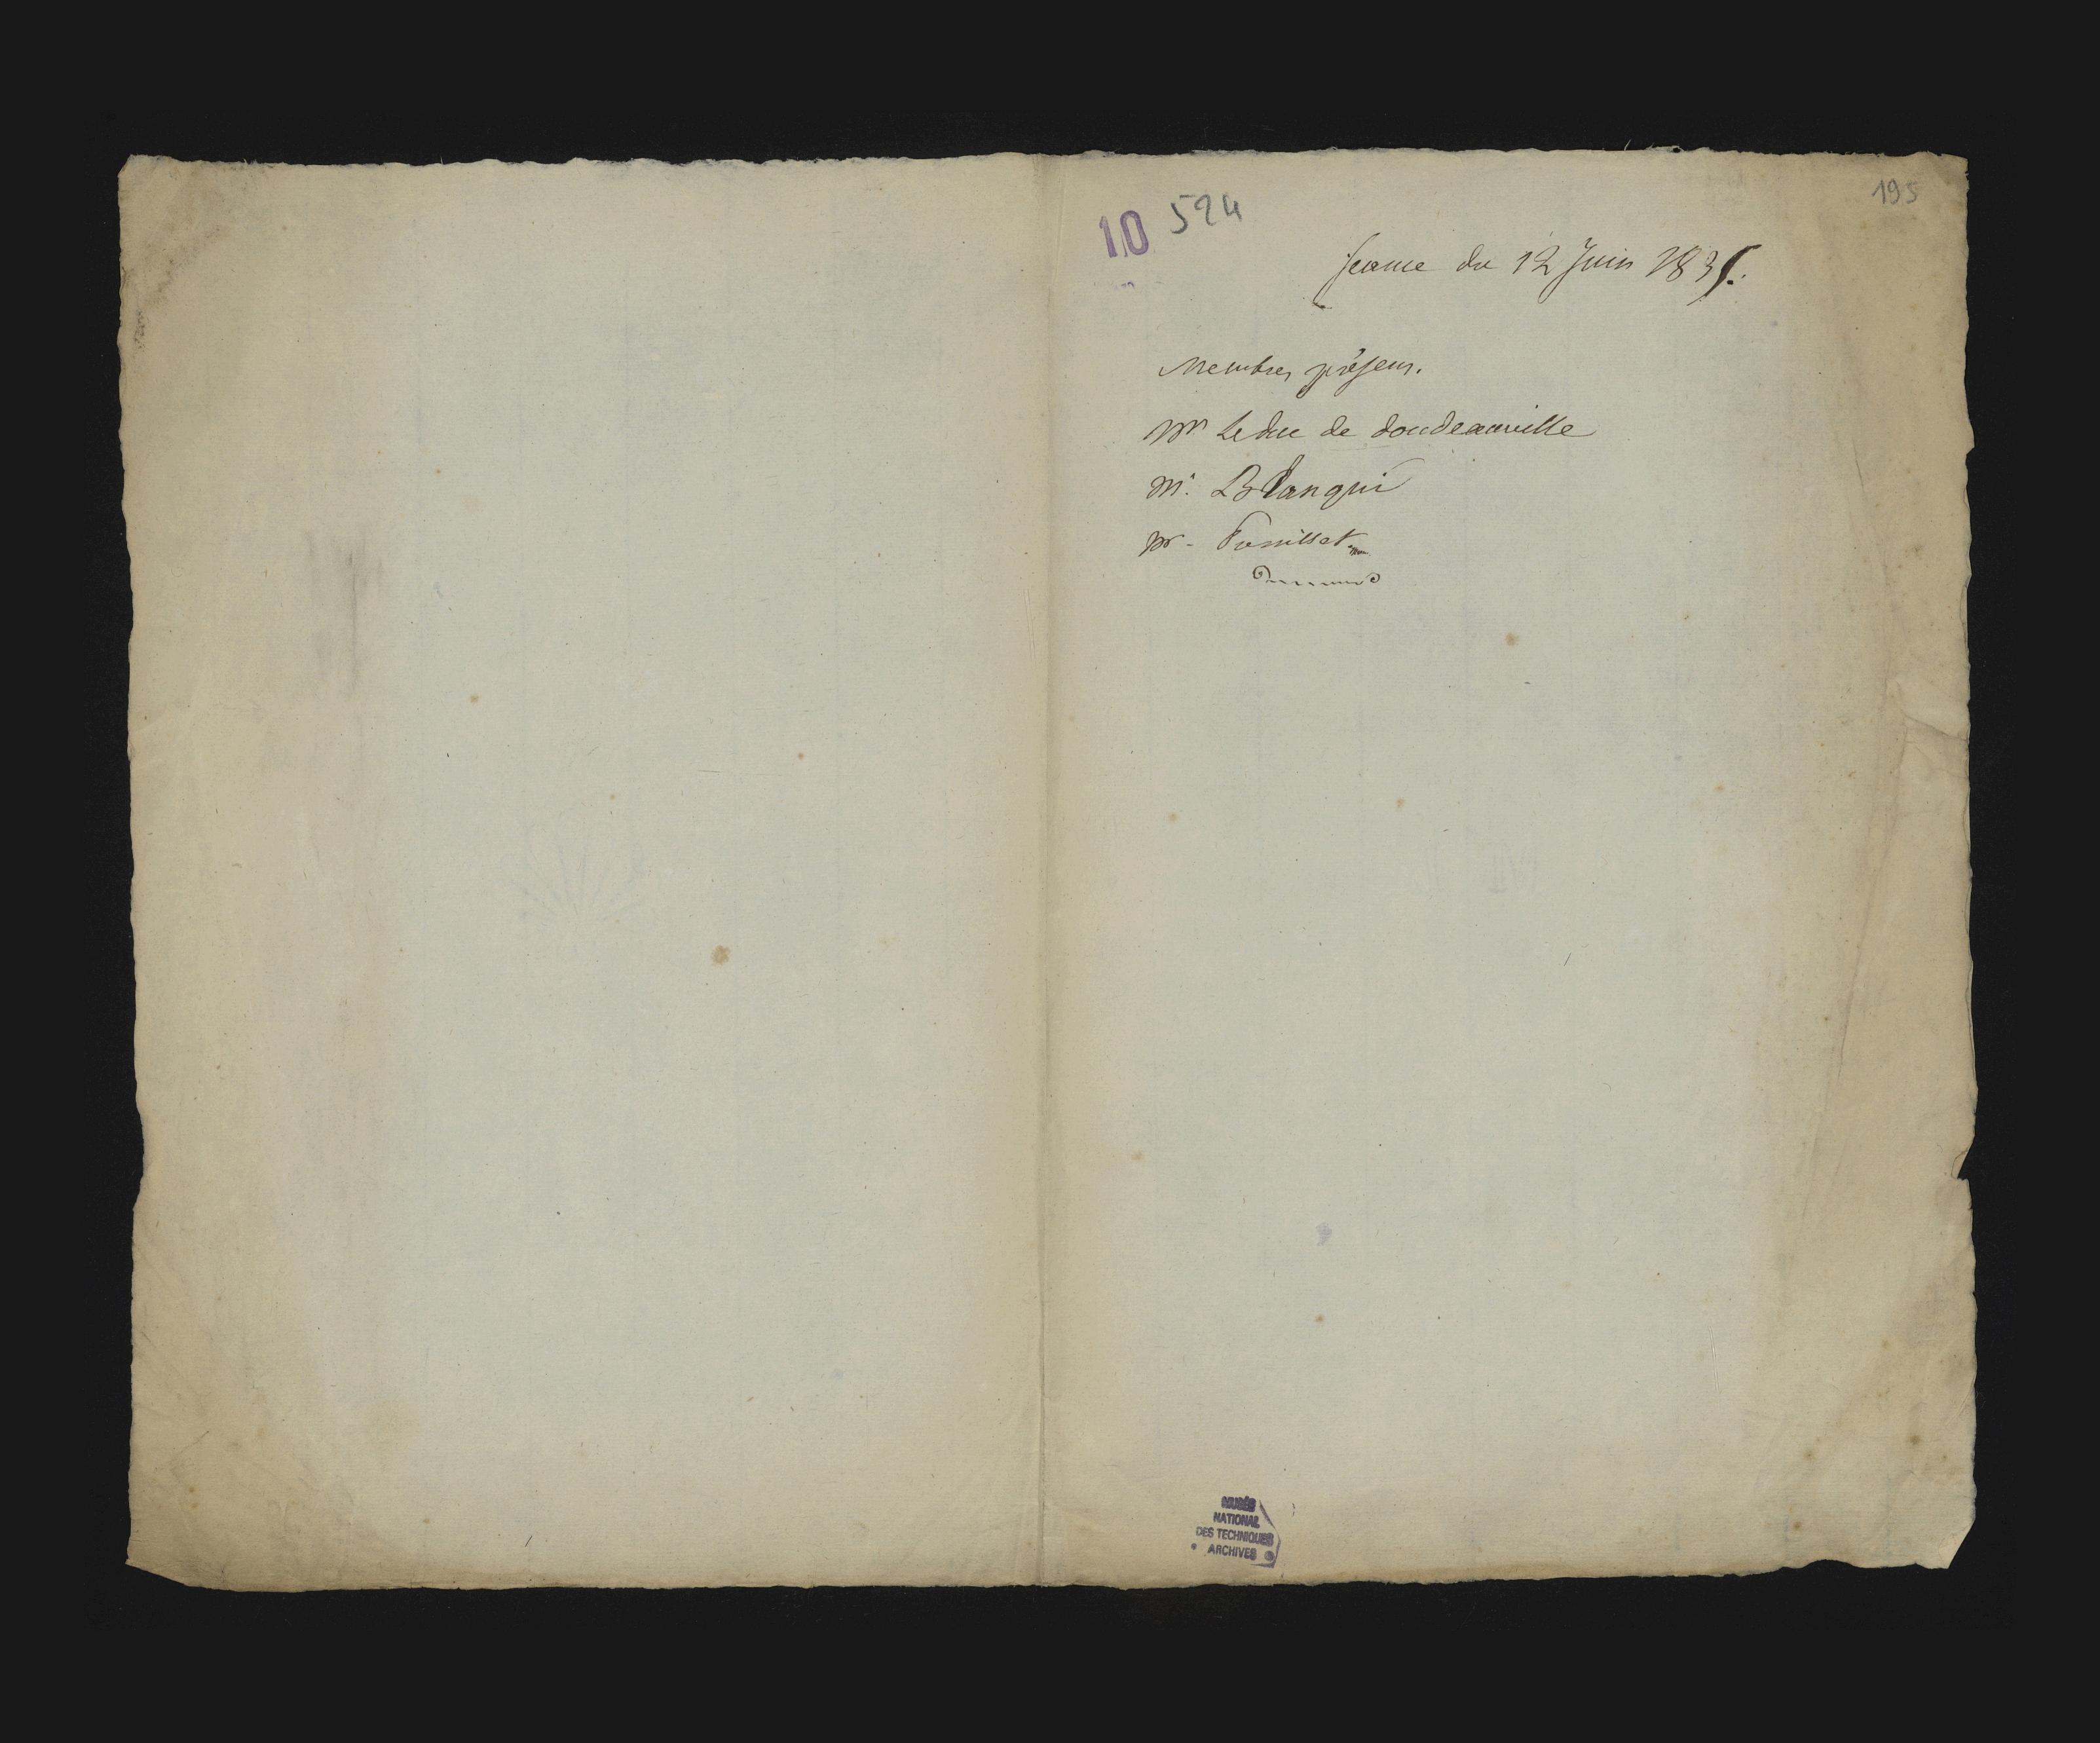 10 524
195
Seance du 12 Juin 1835.
Membres présens.
Mr Le duc de doudeauville
Mr. Blanqui
Mr. Pouillet
MUSÉE
NATIONAL
DES TECHNIQUES
ARCHIVES